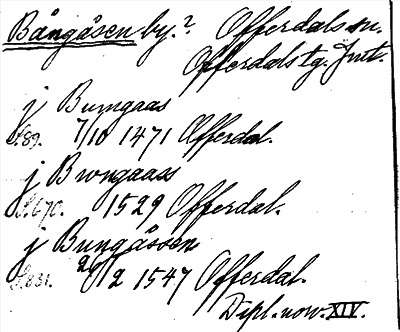 Bångåsen by.? Offerdals sn.
Offerdals tg. Jmt.
j Bumgaas
S.89. 7/10 1471 Offerdal.
j Brongaass
S.670. 1529 Offerdal.
j Bungåssen
S.831. 26/2 1547 Offerdal.
Dipl. norv. XIV.